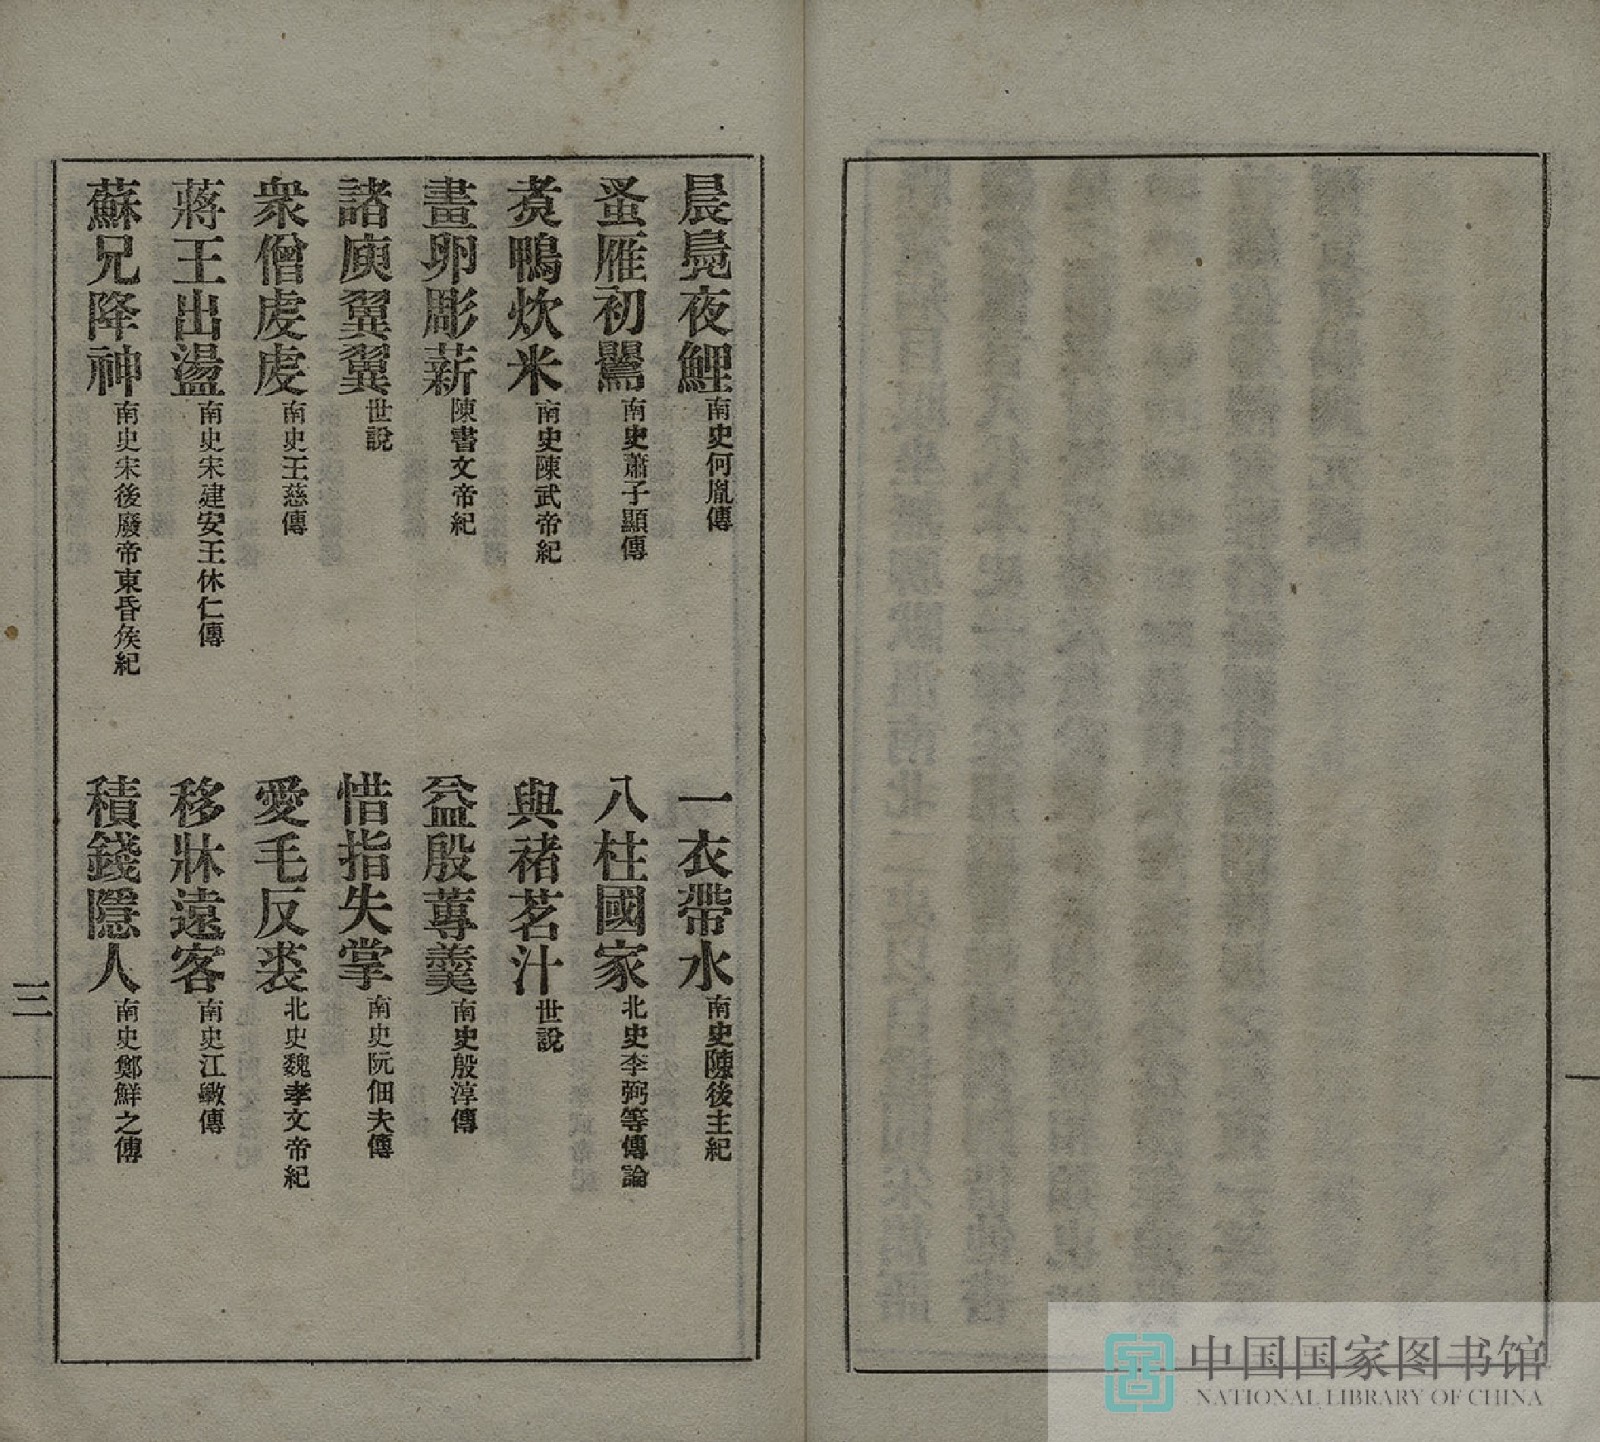 晨鳧夜鯉南史何胤傳
一衣帶水南史陳後主紀
蚤雁初鶯南史蕭子顯傳
八柱國家北史李弼等傳論
煑鴨炊米南史陳武帝紀
與褚茗汁世說
畫卵彫薪陳書文帝紀
益殷蓴羹南史殷淳傳
諸庾翼翼世說
惜指失掌南史阮佃夫傳
衆僧虔虔南史王慈傳
愛毛反裘北史魏孝文帝紀
蔣王出盪南史宋建安王休仁傳
移牀遠客南史江斆傳
蘇兄降神南史宋後廢帝東昏矦紀
積錢隱人南史鄭鮮之傳
三
中国国家图书馆
NATIONAL LIBRARY OF CHINA